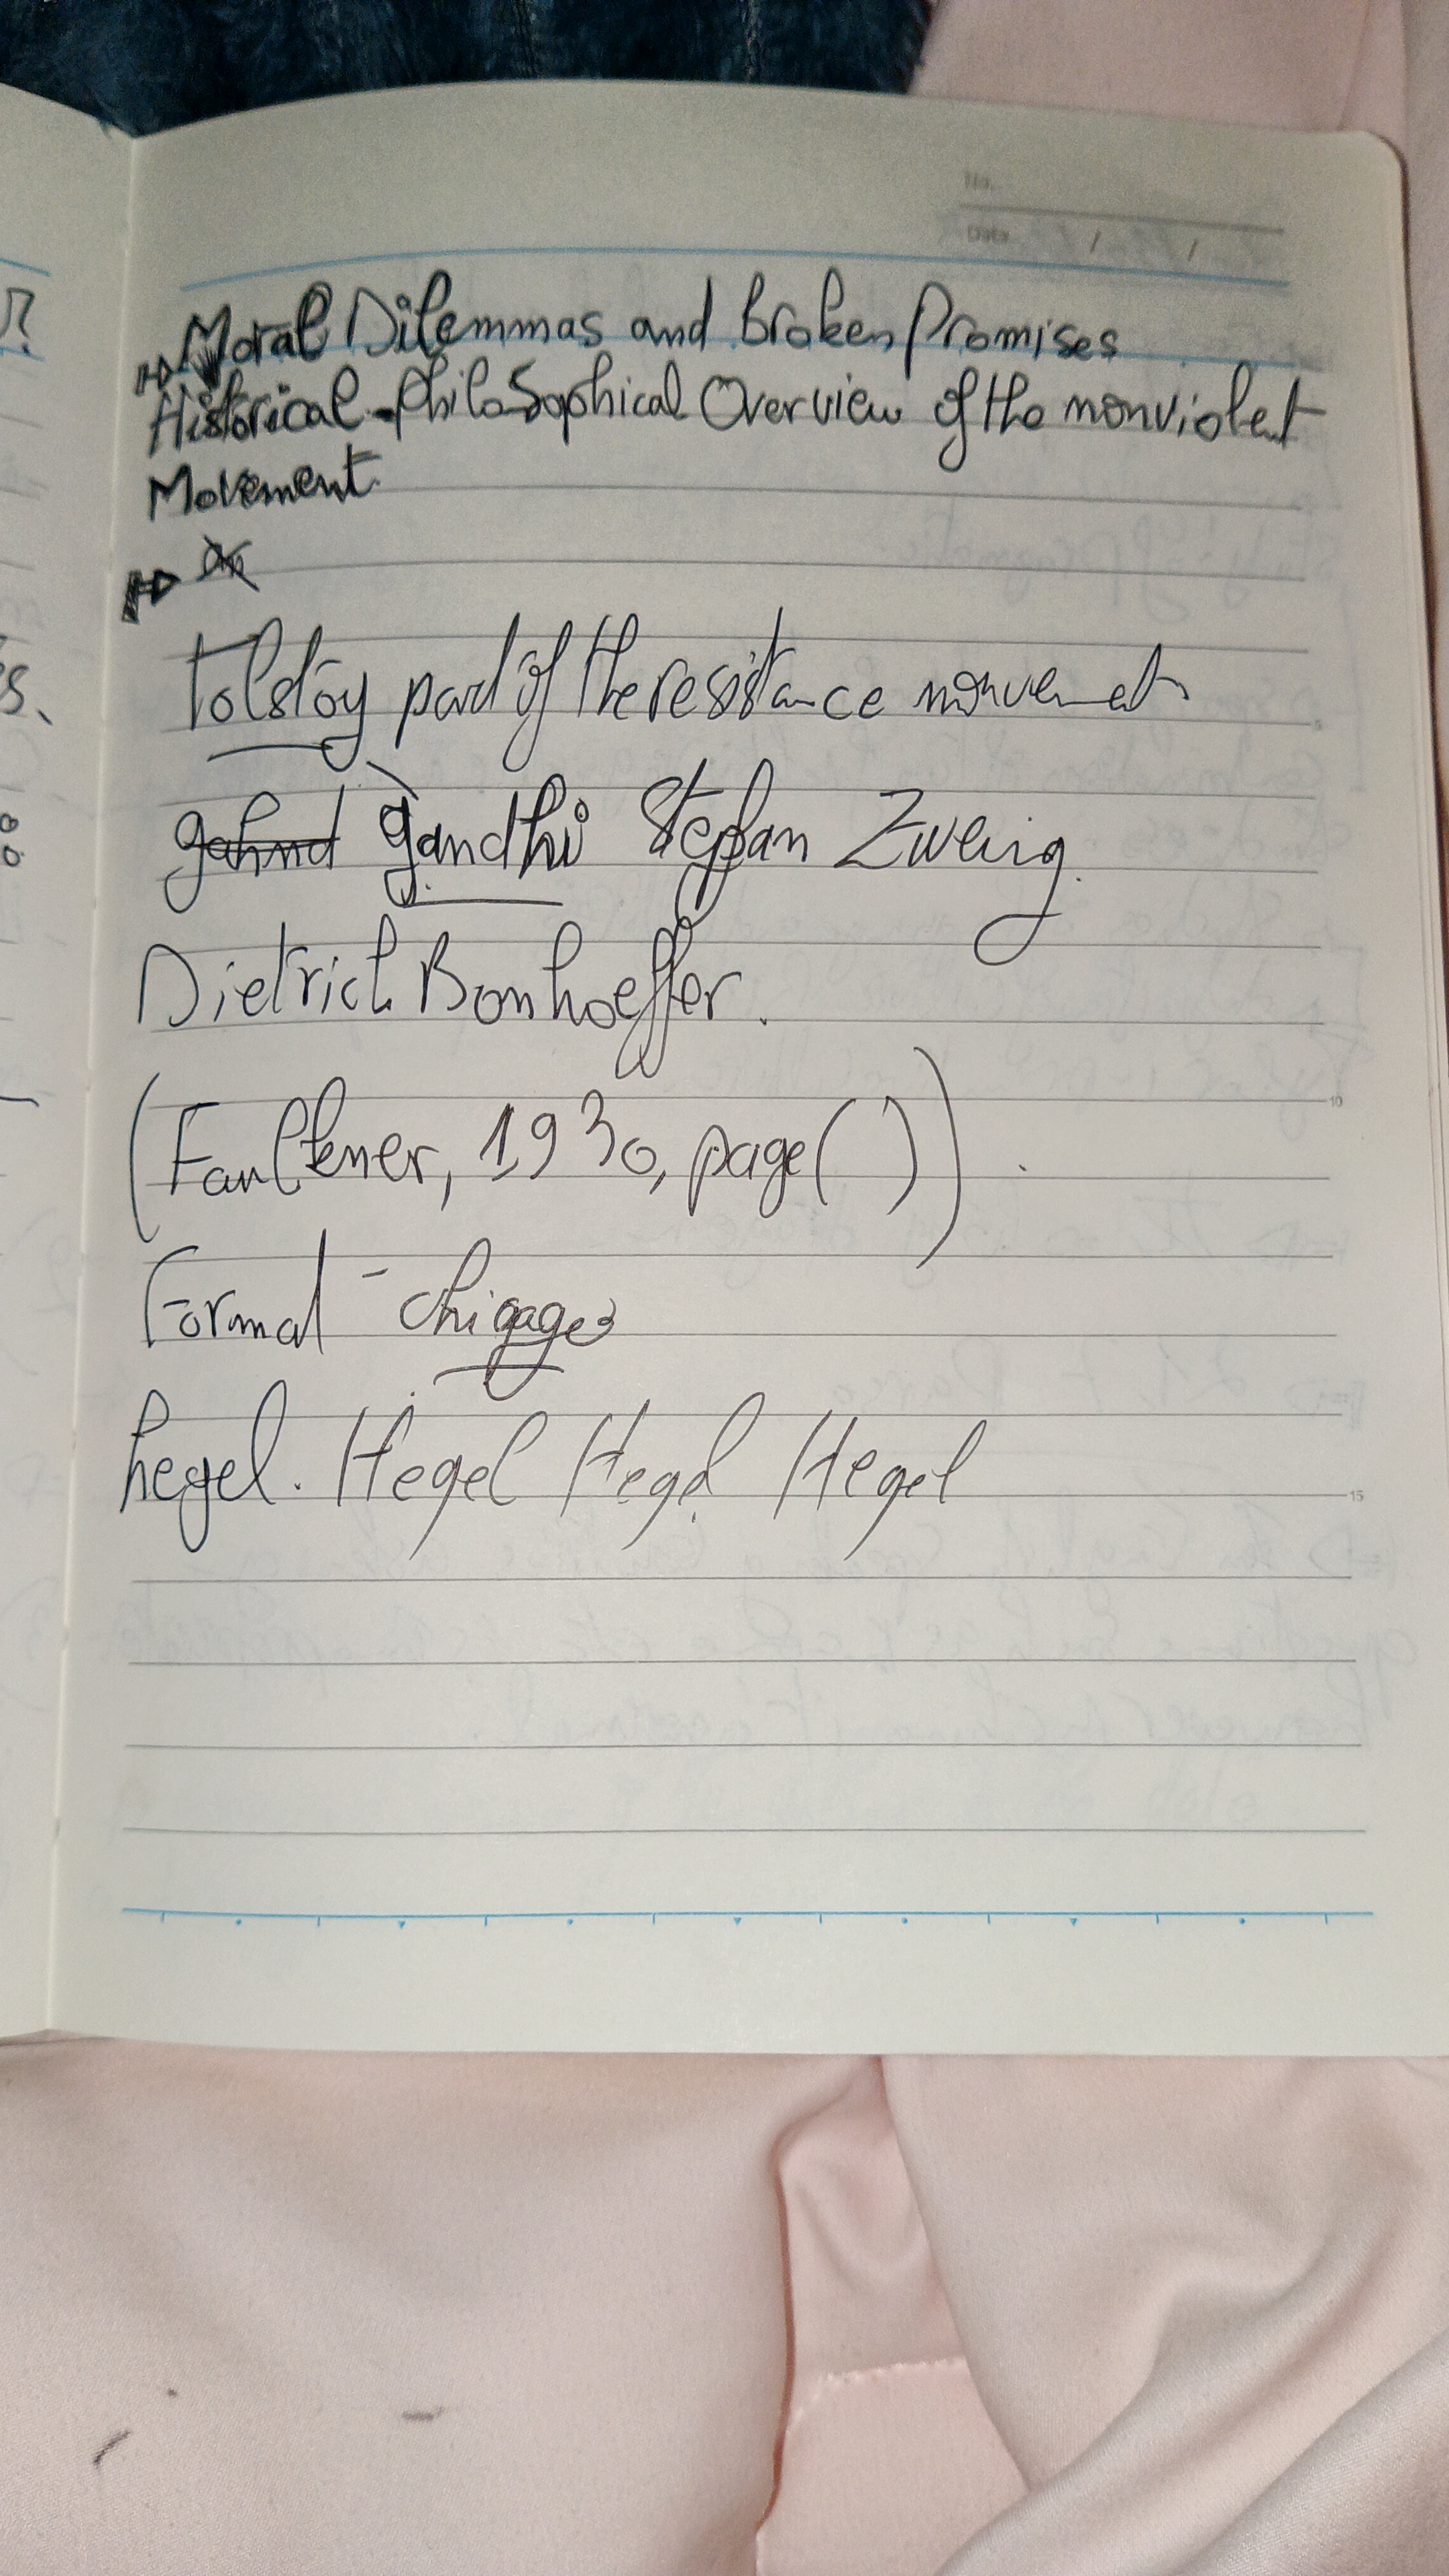 No.
Data / /
Moral Dilemmas and Broken Promises
Historical-Philosophical Overview of the nonviolent
Movement
Tolstoy part of the resistance mouvement
gahnd gandhi Stephan Zweing.
Dietrich Bonhoeffer.
(Faulkener, 1930, page( )).
Format - chigago
hegel. Hegel Hegel Hegel
5
10
15